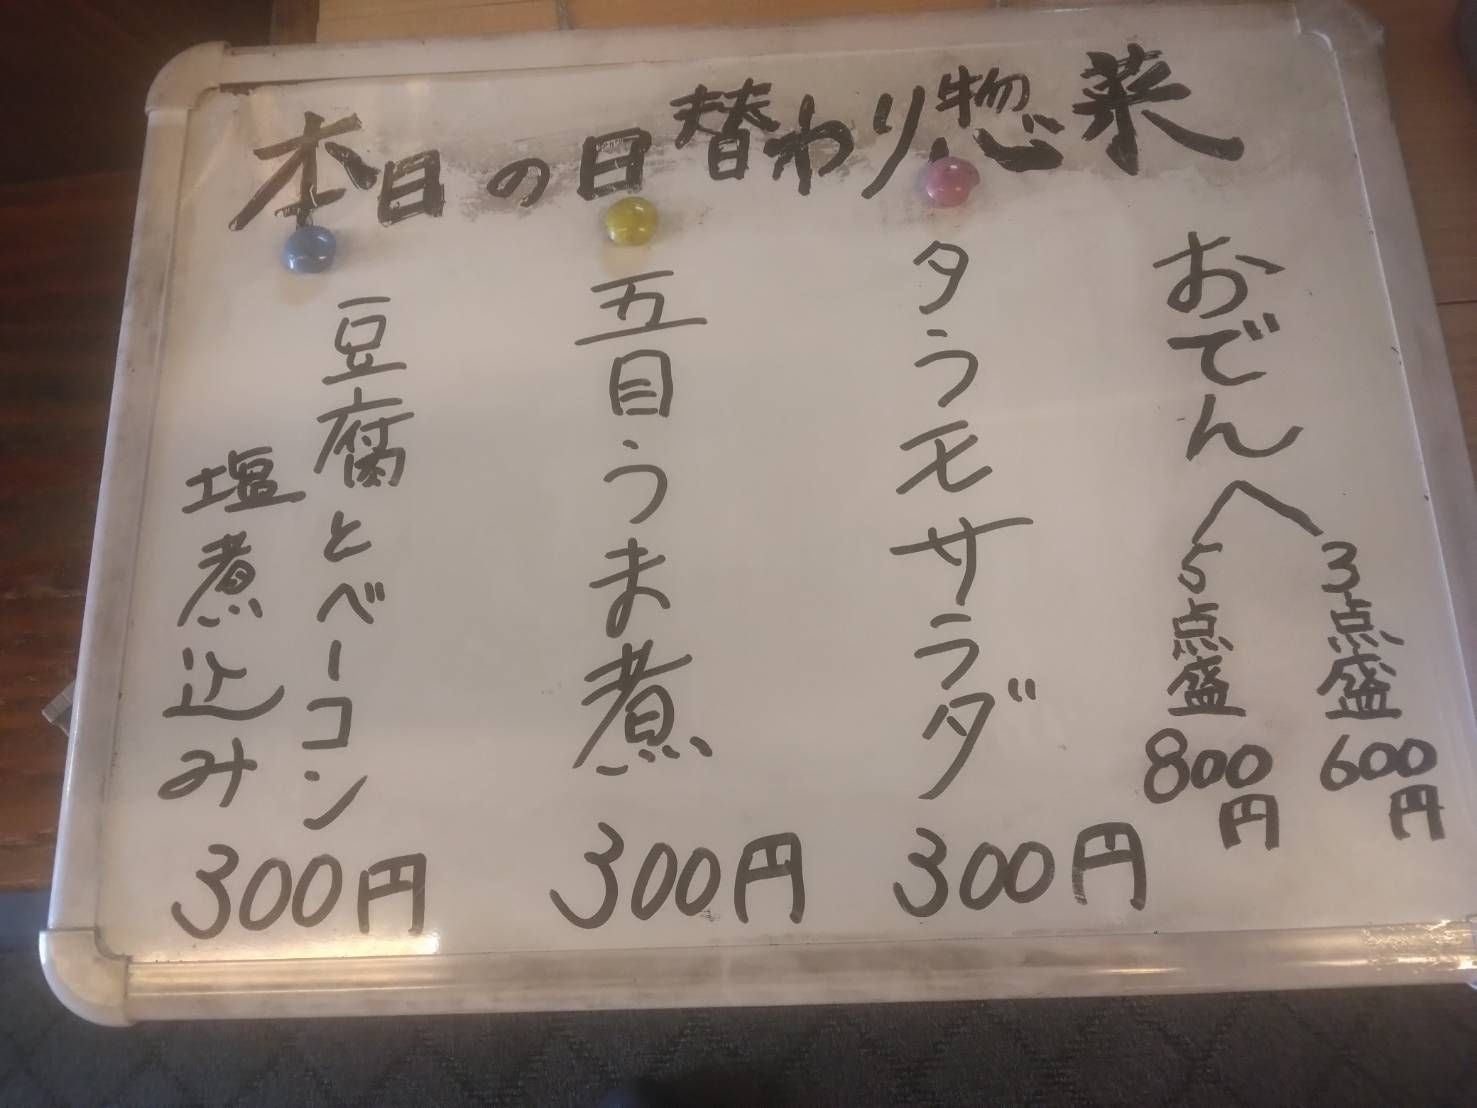 本日の日替わり惣菜
おでん
3点盛
600円
5点盛
800円
タラモサラダ
300円
五目うま煮
300円
豆腐とベーコン
塩煮込み
300円